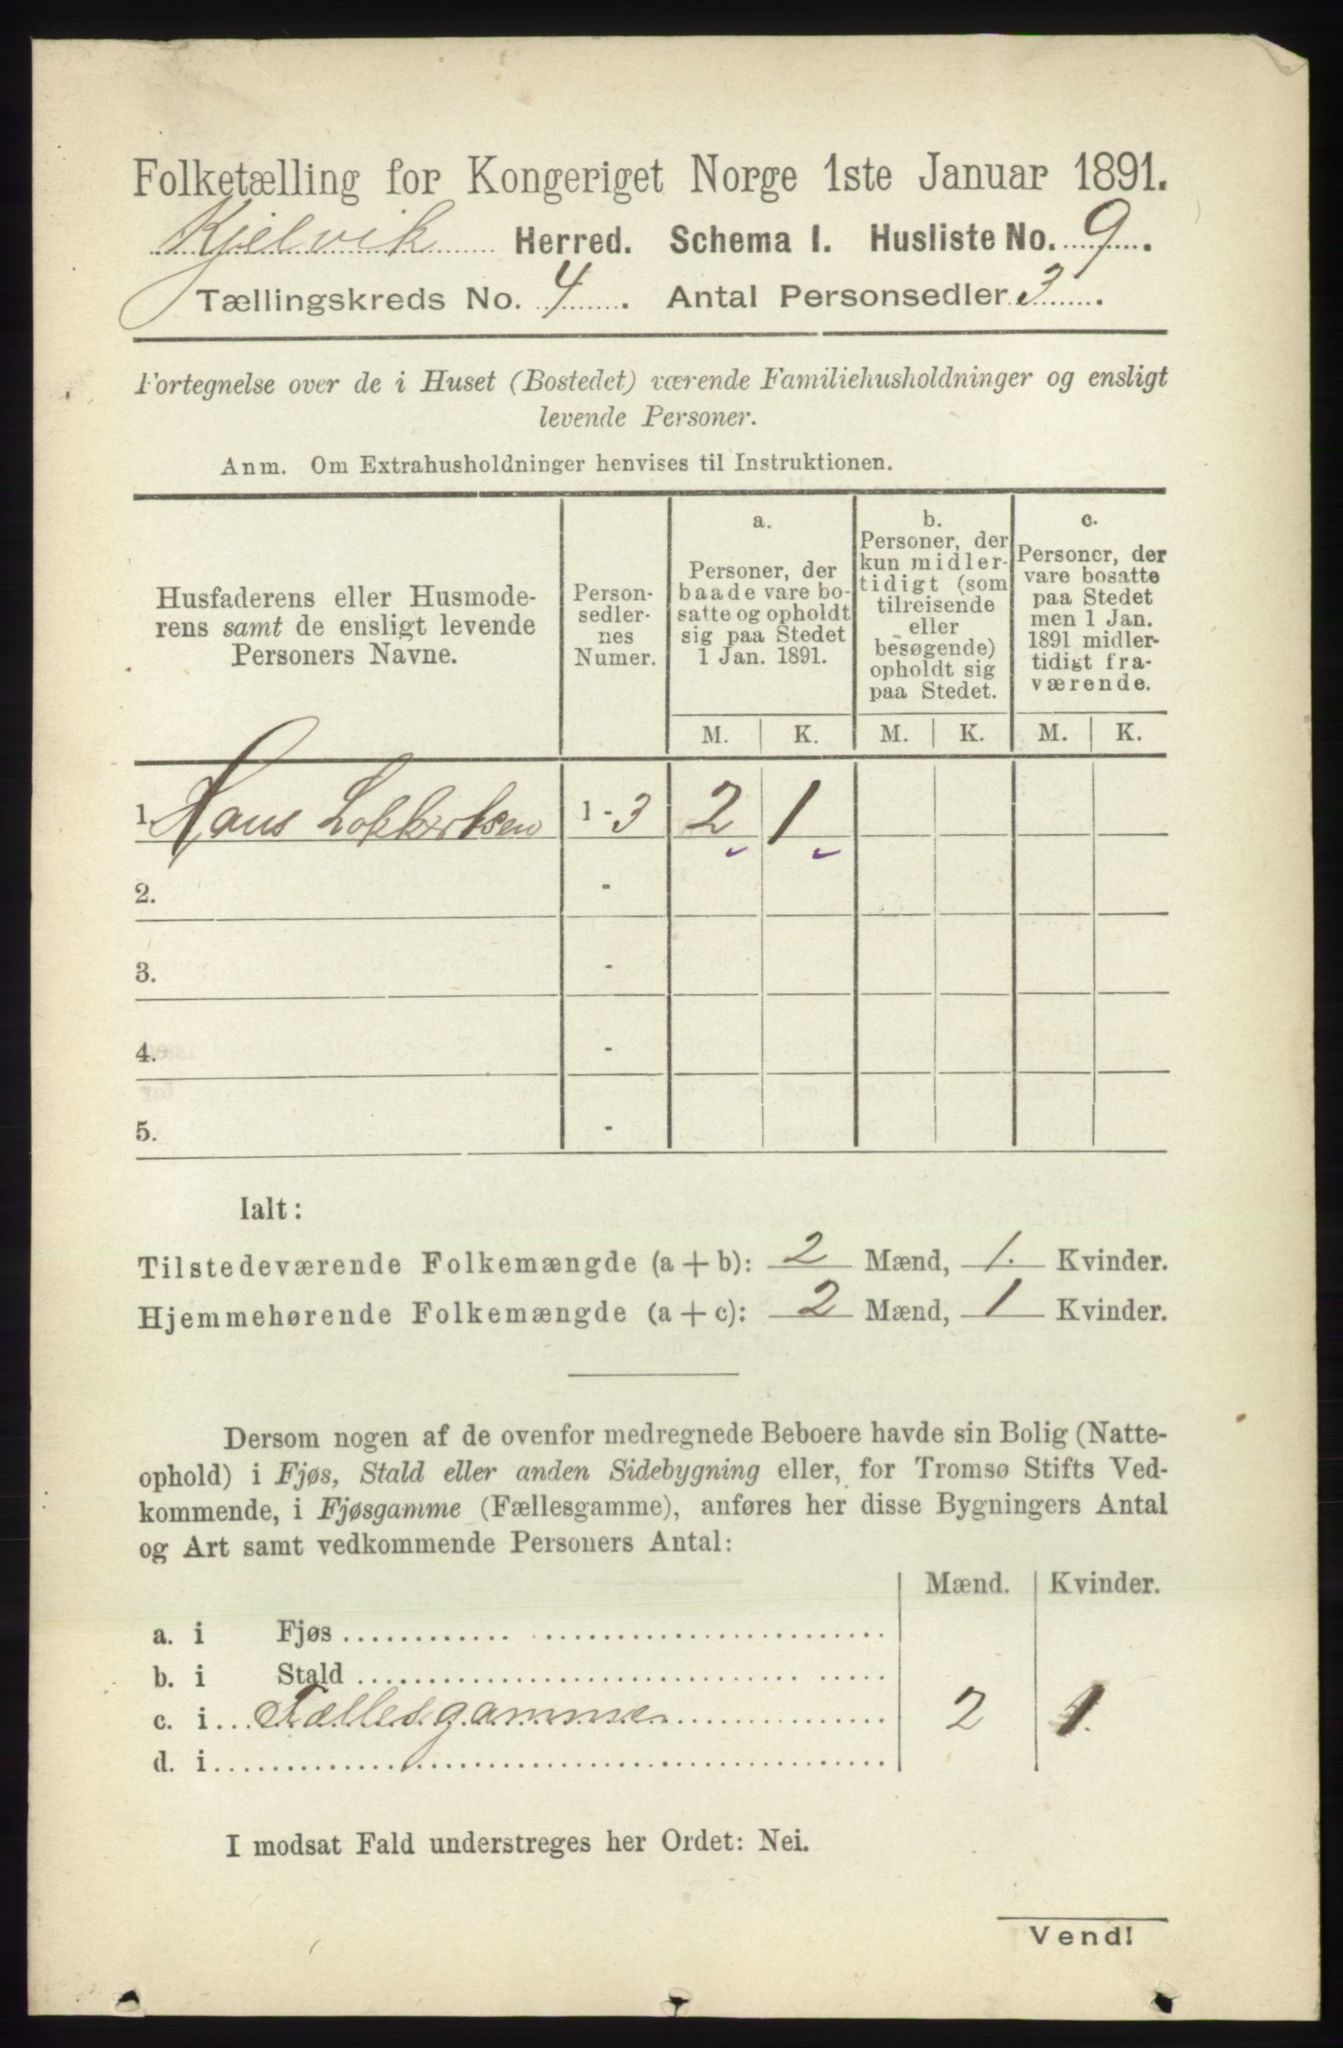 Folketælling for Kongeriget Norge 1ste Januar 1891.
Kjelvik Herred. Schema I. Husliste No. 9.
Tællingskreds No. 4. Antal Personsedler 3.
Fortegnelse over de i Huset (Bostedet) værende Familiehusholdninger og ensligt
levende Personer.
Anm. Om Extrahusholdninger henvises til Instruktionen.
Husfaderens eller Husmode-
rens samt de ensligt levende
Personers Navne.
Person-
sedler-
nes
Numer.
a.
Personer, der
baade vare bo-
satte og opholdt
sig paa Stedet
1 Jan. 1891.
b.
Personer, der
kun midler-
tidigt (som
tilreisende
eller
besøgende)
opholdt sig
paa Stedet.
c.
Personer, der
vare bosatte
paa Stedet
men 1 Jan.
1891 midler-
tidigt fra-
værende.
M. K. M. K. M. K.
1. Hans 1-3 2 1
2. -
3. -
4. -
5. -
Ialt:
Tilstedeværende Folkemængde (a + b): 2 Mænd, 1. Kvinder.
Hjemmehørende Folkemængde (a + c): 2 Mænd, 1 Kvinder.
Dersom nogen af de ovenfor medregnede Beboere havde sin Bolig (Natte-
ophold) i Fjøs, Stald eller anden Sidebygning eller, for Tromsø Stifts Ved-
kommende, i Fjøsgamme (Fællesgamme), anføres her disse Bygningers Antal
og Art samt vedkommende Personers Antal:
Mænd. Kvinder.
a. i Fjøs
b. i Stald
c. i Fællesgamme 2 1.
d. i
I modsat Fald understreges her Ordet: Nei.
Vend!